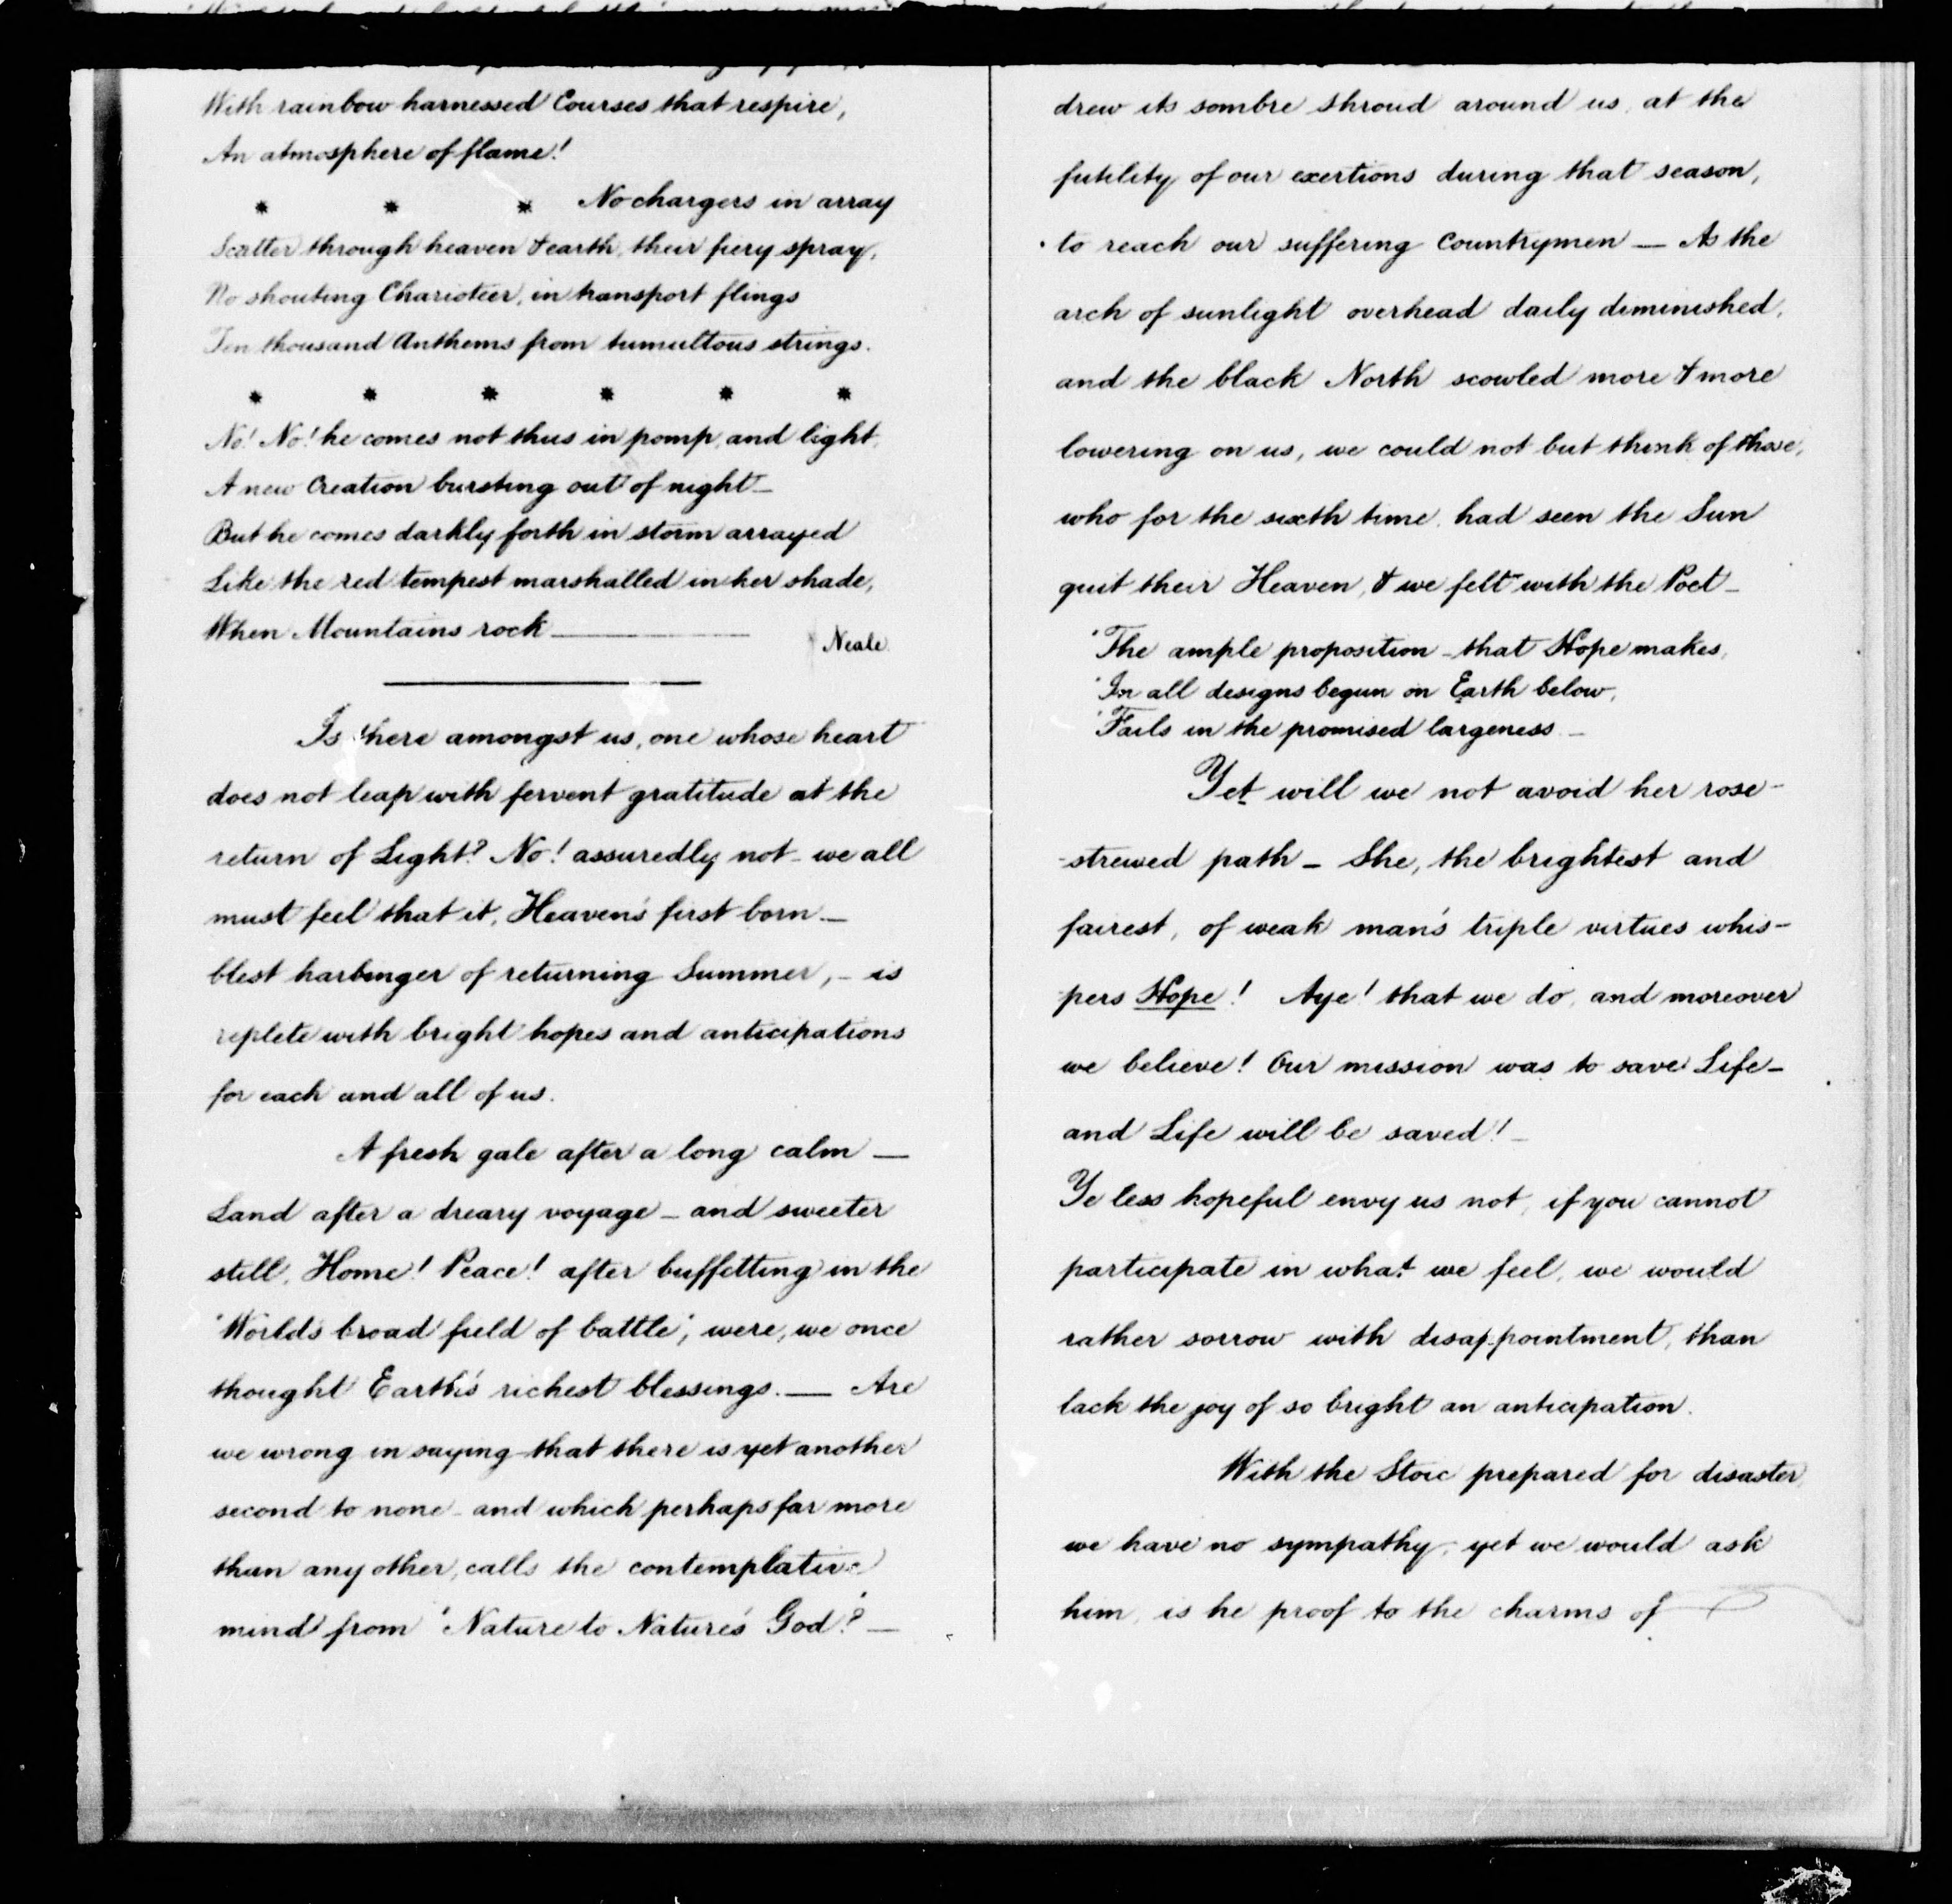 With rainbow harnessed Courses that respire,
An atmosphere of flame!
* * * No chargers in array
Scatter through heaven & earth, their fiery spray,
No shouting Charioteer, in transport flings
Ten thousand Anthems from tumultous strings.
* * * * * *
No! No! he comes not thus in pomp, and light,
A new Creation bursting out of night—
But he comes darkly forth in storm arrayed
Like the red tempest marshalled in her shade,
When Mountains rock ———
Neale.
Is there amongst us, one whose heart
does not leap with fervent gratitude at the
return of Light? No! assuredly not – we all
must feel that it, Heaven's first born –
blest harbinger of returning Summer, – is
replete with bright hopes and anticipations
for each and all of us.
A fresh gale after a long calm —
Land after a dreary voyage – and sweeter
still, Home! Peace! after buffetting in the
'World's broad field of battle', were, we once
thought Earth's richest blessings. — Are
we wrong in saying that there is yet another
second to none – and which perhaps far more
than any other, calls the contemplative
mind from 'Nature to Nature's God?' —
drew its sombre shroud around us, at the
futility of our exertions during that season,
to reach our suffering Countrymen — As the
arch of sunlight overhead daily diminished,
and the black North scowled more & more
lowering on us, we could not but think of those,
who for the sixth time, had seen the Sun
quit their Heaven, & we felt with the Poet –
'The ample proposition – that Hope makes,
'In all designs begun on Earth below,
'Fails in the promised largeness –
Yet will we not avoid her rose-
-strewed path – She, the brightest and
fairest, of weak man's triple virtues whis-
-pers Hope! Aye! that we do, and moreover
we believe! Our mission was to save Life –
and Life will be saved! –
Ye less hopeful envy us not, if you cannot
participate in what we feel, we would
rather sorrow with disappointment, than
lack the joy of so bright an anticipation.
With the Stoic prepared for disaster,
we have no sympathy, yet we would ask
him, is he proof to the charms of